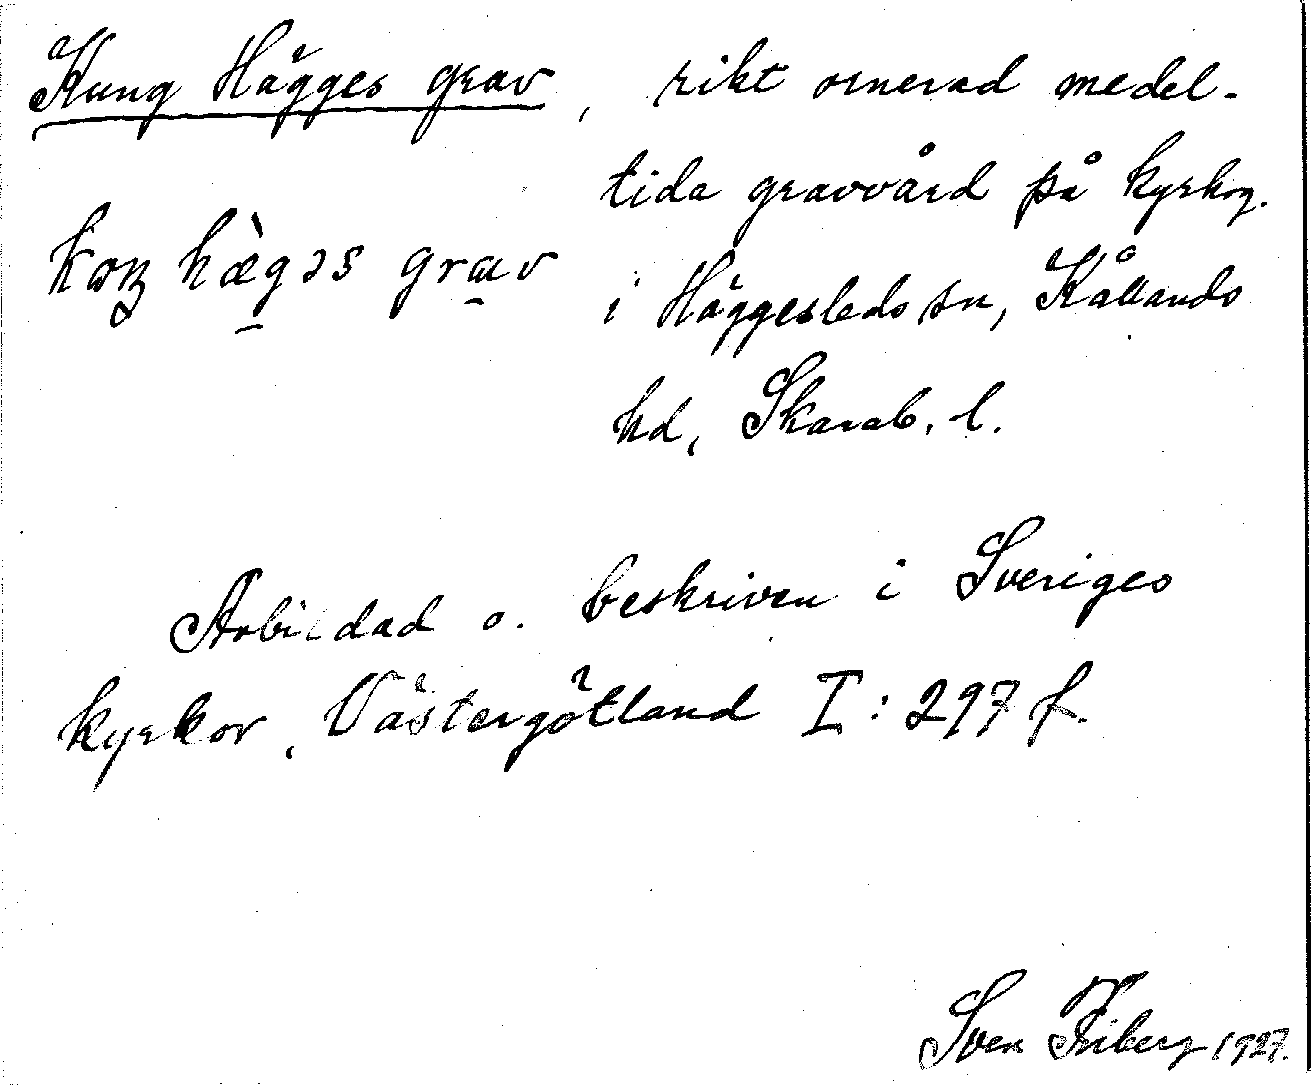 Kung Hägges grav, rikt ornerad medel-
tida gravvård på kyrkog.
i Häggesleds sn, Kållands
hd, Skarab. l.
hæ̀gəs grav
Avbildad o. beskriven i Sveriges
kyrkor, Västergötland I: 297 f.
Sven Friberg 1927.